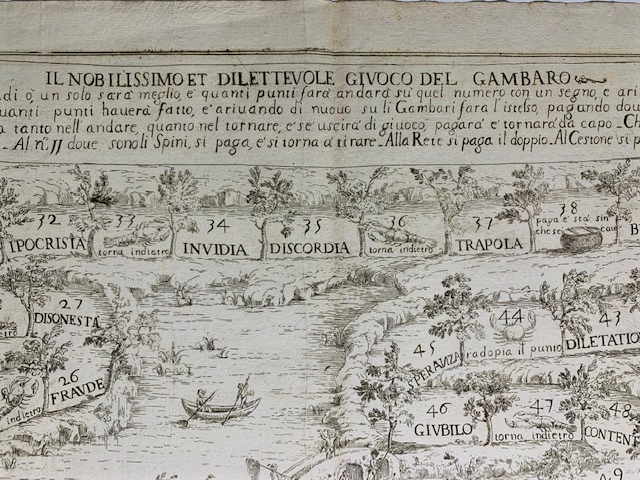 IL NOBILISSIMO ET DILETTEVOLE GIVOCO DEL GAMBARO
di o, un solo sarà meglio, e quanti punti farà andarà su quel numero con un segno, e ari
uanti punti hauerà fatto, e ariuando di nuouo su li Gambari farà l'istesso, pagando dou
a tanto nell andare, quanto nel tornare, e se uscirà di giuoco, pagarà e tornarà da capo. Ch
Al nº. 11 doue sono li Spini, si paga, e si torna a tirare. Alla Rete si paga il doppio. Al Cestone si p
32
IPOCRISIA
33
torna indietro
34
INVIDIA
35
DISCORDIA
36
torna indietro
37
TRAPOLA
38
paga e sta sin
che sei
B
27
DISONESTÀ
26
FRAUDE
indietro
45
SPERANZA
44
radopia il punto
43
DILETATIO
46
GIVBILO
47
torna indietro
48
CONTEN
49